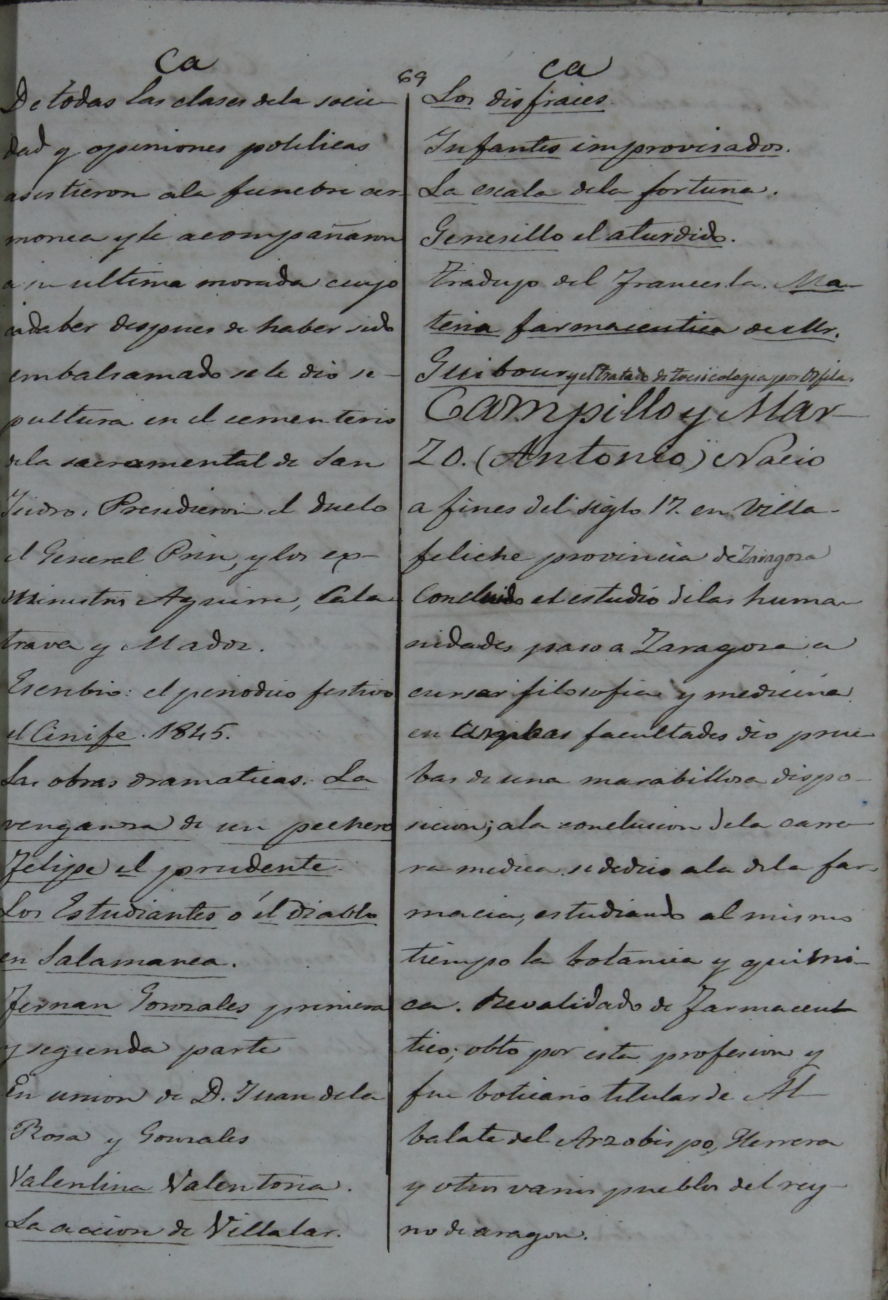 Ca
De todas las clases de la socie-
dad y opiniones politicas
asistieron ala funebre cer-
monea y le acompañaron
a su ultima morada cuyo
cadaber despues de haber sido
embalsamado se le dio se-
pultura en el cementerio
de la sacramental de San
Isidro. Presidieron el duelo
el General Prin, y los ex-
Ministros Aguirre, Cala
trava y Madoz.
Escribio: el periodico festivo
el Cinife. 1845.
Las obras dramaticas. La
venganza de un pechero
Felipe el prudente
Los Estudiantes ó el Diablo
en Salamanca.
Fernan Gonzales primera
y segunda parte
En union de D. Juan de la
Rosa y Gonzales
Valentina Valentona.
La accion de Villalar.
69
ca
Los disfraces
Infantes improvisados.
La escala de la fortuna.
Genesillo el aturdido.
Tradujo del Frances la. Ma-
teria farmaceutica de Mr.
Guibour y el tratado de tocsicologia por Orfila
Campillo y Mar-
zo. (Antonio) Nacio
a fines del siglo 17. en Villa-
feliche provincia de Zaragoza
Concluido el estudio de las huma-
nidades, paso a Zaragoza a
cursar filosofia y medicina
en ambas facultades dio prue
bas de una marabillosa dispo-
sicion; ala conclucion de la carre
ra medica se dedico ala de la far-
macia, estudiando al mismo
tiempo la botanica y quimi-
ca. Revalidado de Farmaceu-
tico; obto por esta profesion y
fue boticario titular de Al-
balate del Arzobispo, Herrera
y otros varios pueblos del rey-
no de aragon.